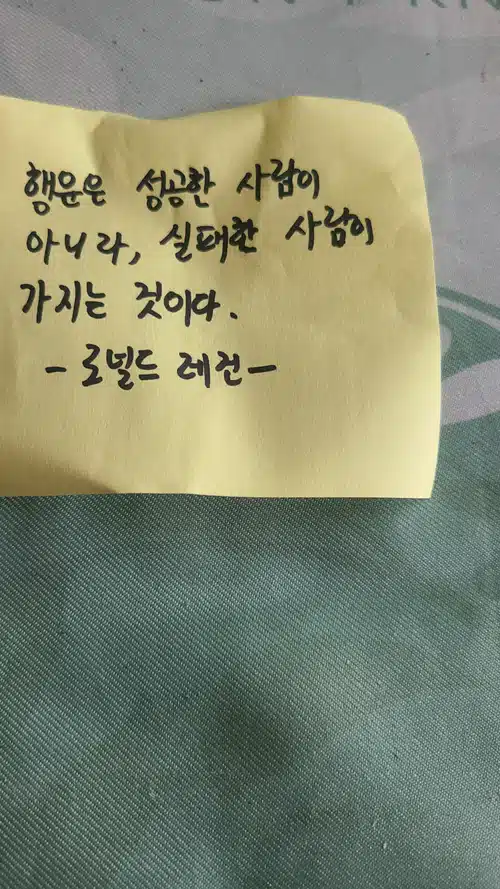 행운은 성공한 사람이
아니라, 실패한 사람이
가지는 것이다.
- 로널드 레건 -